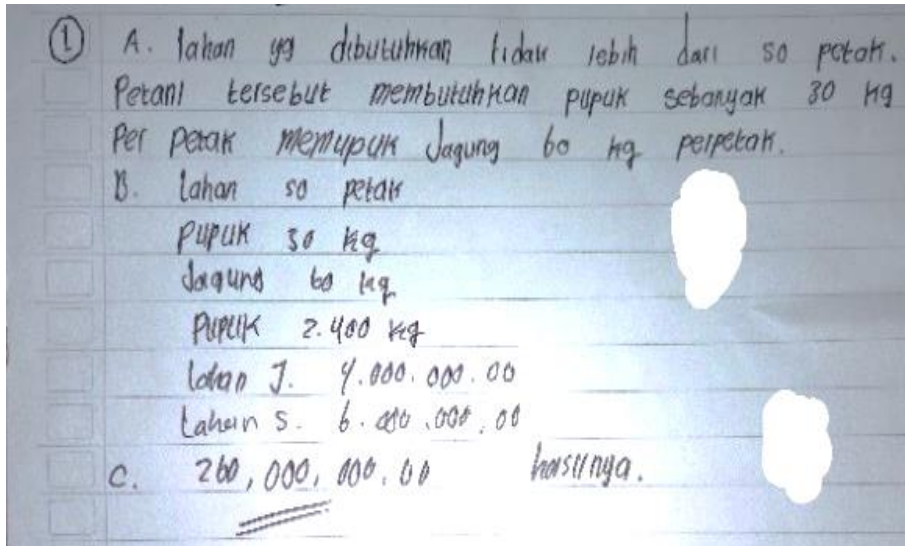 ① A. lahan yg dibutuhkan tidak lebih dari 50 petak.
Petani tersebut membutuhkan pupuk sebanyak 30 kg
Per petak memupuk Jagung 60 kg perpetak.
B. Lahan 50 petak
Pupuk 30 kg
Jagung 60 kg
Pupuk 2.400 kg
Lahan J. 4.000.000.00
Lahan S. 6.000.000.00
C. 260,000,000.00 hasilnya.